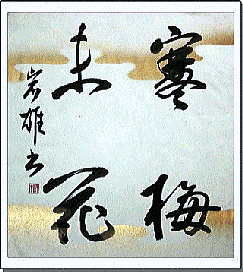 寒梅
未花
岩雄书